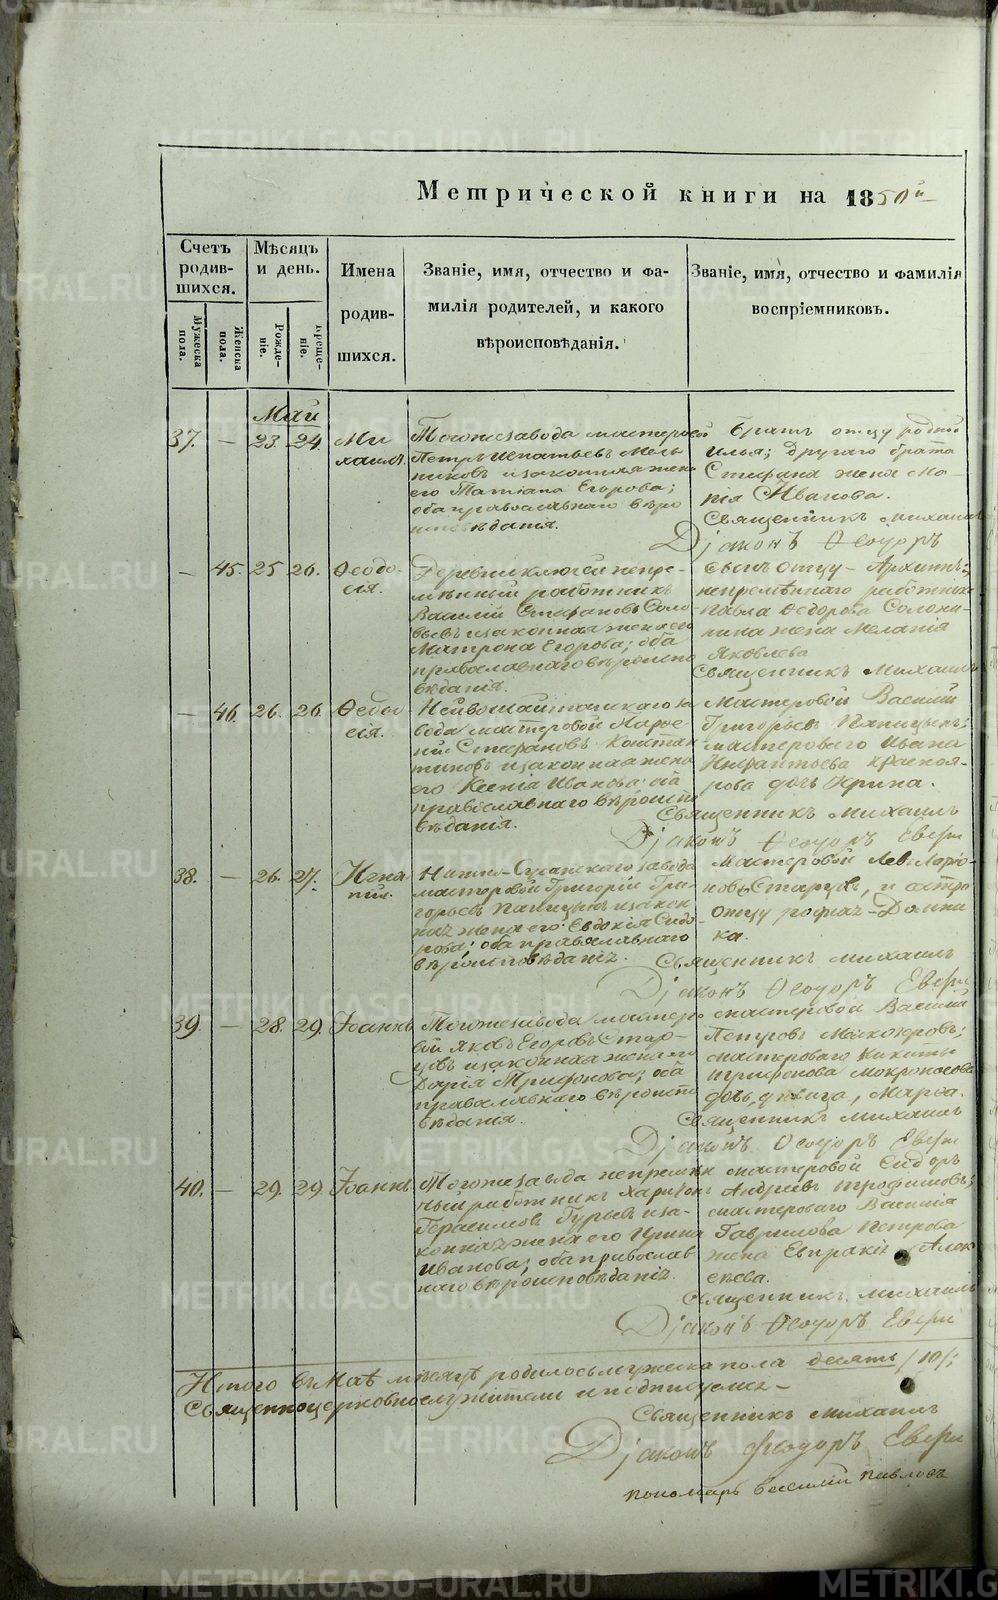 Метрической книги на 1850й
Счетъ родив-шихся.
Мѣсяцъ и день.
Имена родив-шихся.
Званіе, имя, отчество и фа-
милія родителей, и какого
вѣроисповѣданія.
Званіе, имя, отчество и фамилія
воспріемниковъ.
Мужеска пола.
Женска пола.
Рожде-ніе.
Креще-ніе.
Май
37. — 23 24 Ми
хаилъ.
Тогожезавода мастеровой
Петръ Игнатьевъ Мель
никовъ изаконная жена
его Татіана Егорова;
оба православнаго вѣро
исповѣданія.
Братъ отцу родной
Илья; другаго брата
Стефана жена Ма-
рія Иванова.
Священникъ Михаилъ
Діаконъ Ѳеодоръ
— 45. 25 26. Ѳеодо-
сія.
Деревни Ключей непре-
мѣнный работникъ
Василій Стефановъ Соло
вьевъ изаконная жена его
Матрона Егорова; оба
православнаго вѣроиспо
вѣданія.
сынъ отцу Архипъ;
непремѣннаго работника
Павла Ѳедорова
жена Меланія
Яковлева
Священникъ Михаилъ
— 46. 26. 26. Ѳеодо
сія.
Нейвошайтанскаго за
вода мастеровой Ларіо
нъ Стефановъ Констан
тиновъ изаконная жена
его Ксенія Иванова; оба
православнаго вѣроиспо
вѣданія.
Мастеровой Василій
Григорьевъ Папицынъ;
мастероваго Ивана
Инфантьева Красноя-
рова дочь Ирина.
Священникъ Михаилъ
Діаконъ Ѳеодоръ
38. — 26. 27.
Нижно-Сусанскаго завода
мастеровой Григорій Гри-
горьевъ Папицынъ изакон
ная жена его Евдокія Сидо-
рова; оба православнаго
вѣроисповѣданія.
Мастеровой Левъ Ларіо-
новъ Старцевъ, и сестра
отцу родная Домни
ка.
Священникъ Михаилъ
Діаконъ Ѳеодоръ
39. — 28. 29. Іоаннъ
Тогожезавода мастеро
вой Яковъ Егоровъ Стар-
цовъ изаконная жена его
Дарія Трифонова; оба
православнаго вѣроиспо
вѣданія.
мастеровой Василій
Петровъ
мастероваго Никиты
Трифонова Мокроносова
дочь, дѣвица, Марѳа.
Священникъ Михаилъ
Діаконъ Ѳеодоръ
40. — 29. 29 Іоаннъ
Тогожезавода непремѣн
ный работникъ Харитонъ
Герасимовъ Гурьевъ иза-
конная жена его Ирина
Иванова; оба православ
наго вѣроисповѣданія.
мастеровой Сидоръ
Андреевъ Трофимовъ;
мастероваго Василія
Гаврилова Петрова
жена Евпраксія Алек
сѣева.
Священникъ Михаилъ
Діаконъ Ѳеодоръ
Итого въ Маѣ мѣсяцѣ родилось мужеска пола десять /10/;
Священноцерковнослужители и подписуемся —
Священникъ Михаилъ
Діаконъ Ѳеодоръ
Пономарь Василій Павловъ
METRIKI.GASO-URAL.RU